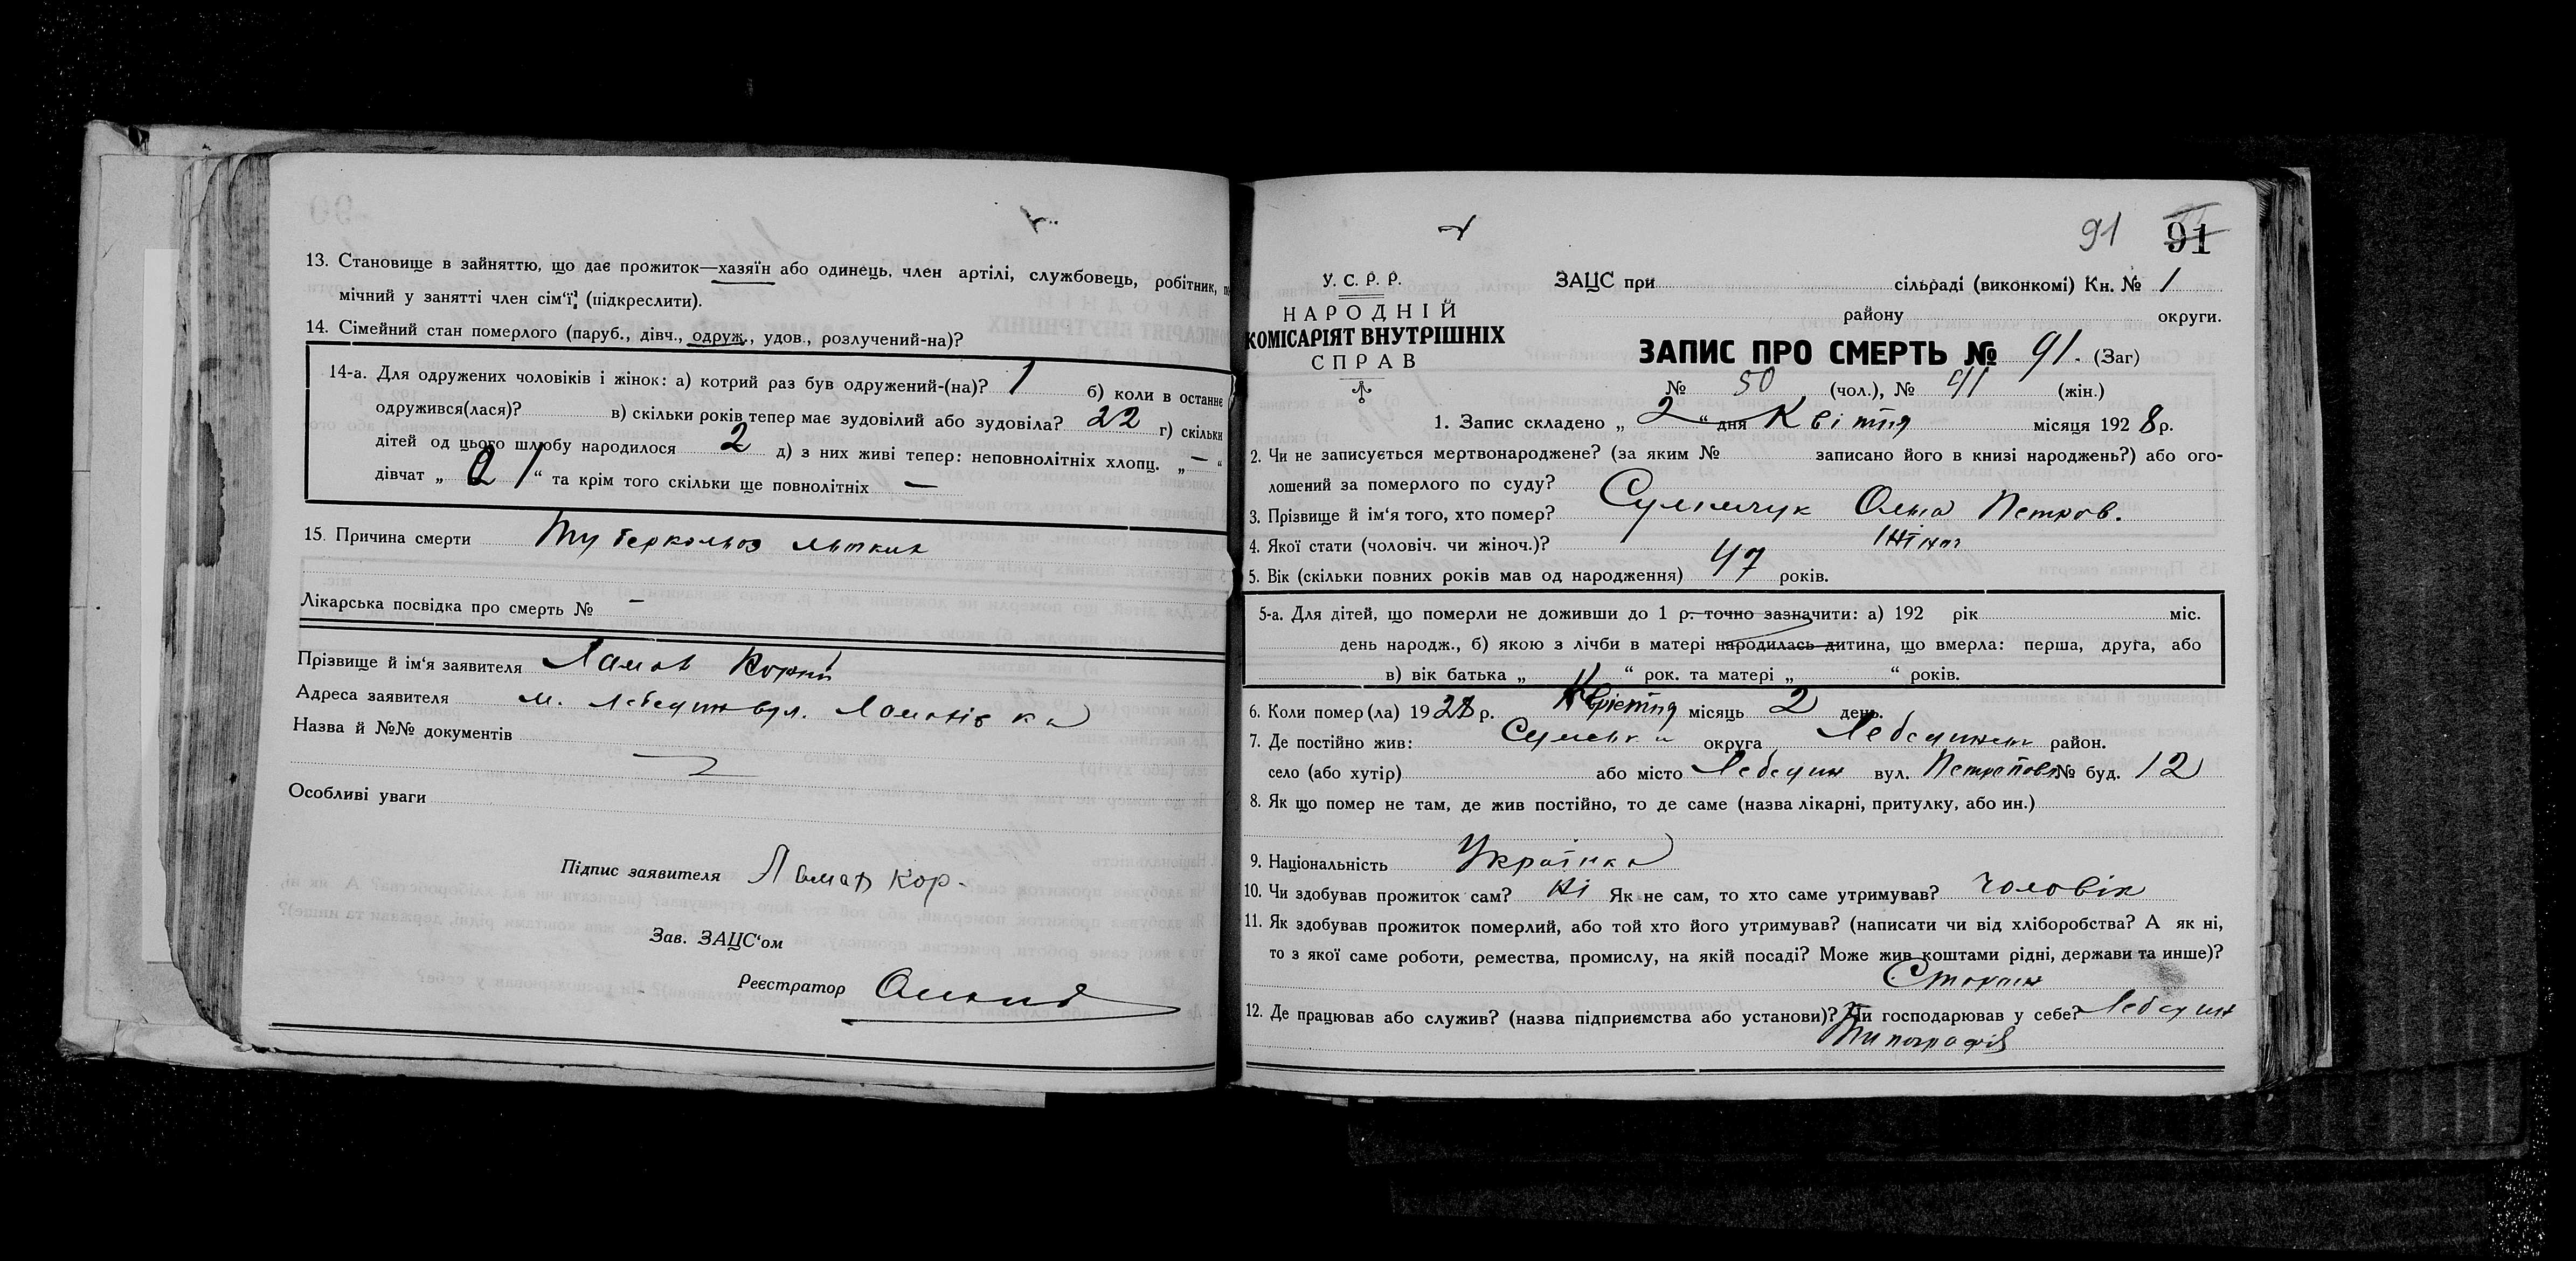 13. Становище в зайняттю, що дає прожиток—хазяїн або одинець, член артілі, службовець, робітник,
мічний у занятті член сім'ї; (підкреслити).
14. Сімейний стан померлого (паруб., дівч., одруж., удов., розлучений-на)?
14-а. Для одружених чоловіків і жінок: а) котрий раз був одружений-(на)? 1 б) коли в останнє
одружився(лася)? в) скільки років тепер має зудовілий або зудовіла? 22 г) скільки
дітей од цього шлюбу народилося 2 д) з них живі тепер: неповнолітніх хлопц. „ — “
дівчат „ 1 “ та крім того скільки ще повнолітніх —
15. Причина смерти Туберкольоз
Лікарська посвідка про смерть № —
Прізвище й ім'я заявителя Ламах Корній
Адреса заявителя м. Лебедин вул. Ламанівка
Назва й №№ документів
Особливі уваги
Підпис заявителя Ламах Кор.
Зав. ЗАЦС'ом
Реєстратор
91 91
У. С. Р. Р.
НАРОДНІЙ
КОМІСАРІЯТ ВНУТРІШНІХ
СПРАВ
ЗАЦС при сільраді (виконкомі) Кн. № 1
району округи.
ЗАПИС ПРО СМЕРТЬ № 91. (Заг)
№ 50 (чол.), № 41 (жін.)
1. Запис складено „ 2 “ дня Квітня місяця 1928 р.
2. Чи не записується мертвонароджене? (за яким № записано його в книзі народжень?) або ого-
лошений за померлого по суду?
3. Прізвище й ім'я того, хто помер? Ольга Петров.
4. Якої стати (чоловіч. чи жіноч.)? жіноч
5. Вік (скільки повних років мав од народження) 47 років.
5-а. Для дітей, що померли не доживши до 1 р. точно зазначити: а) 192 рік міс.
день народж., б) якою з лічби в матері народилась дитина, що вмерла: перша, друга, або
в) вік батька „ “ рок. та матері „ “ років.
6. Коли помер(ла) 1928 р. Квітня місяць 2 день.
7. Де постійно жив: Сумська округа Лебединськ район.
село (або хутір) або місто Лебедин вул. № буд. 12
8. Як що помер не там, де жив постійно, то де саме (назва лікарні, притулку, або ин.)
9. Національність Українка
10. Чи здобував прожиток сам? Ні Як не сам, то хто саме утримував? Чоловік
11. Як здобував прожиток померлий, або той хто його утримував? (написати чи від хліборобства? А як ні,
то з якої саме роботи, ремества, промислу, на якій посаді? Може жив коштами рідні, держави та инше)?
Сторож
12. Де працював або служив? (назва підприємства або установи)? Чи господарював у себе? Лебедин
Типографія